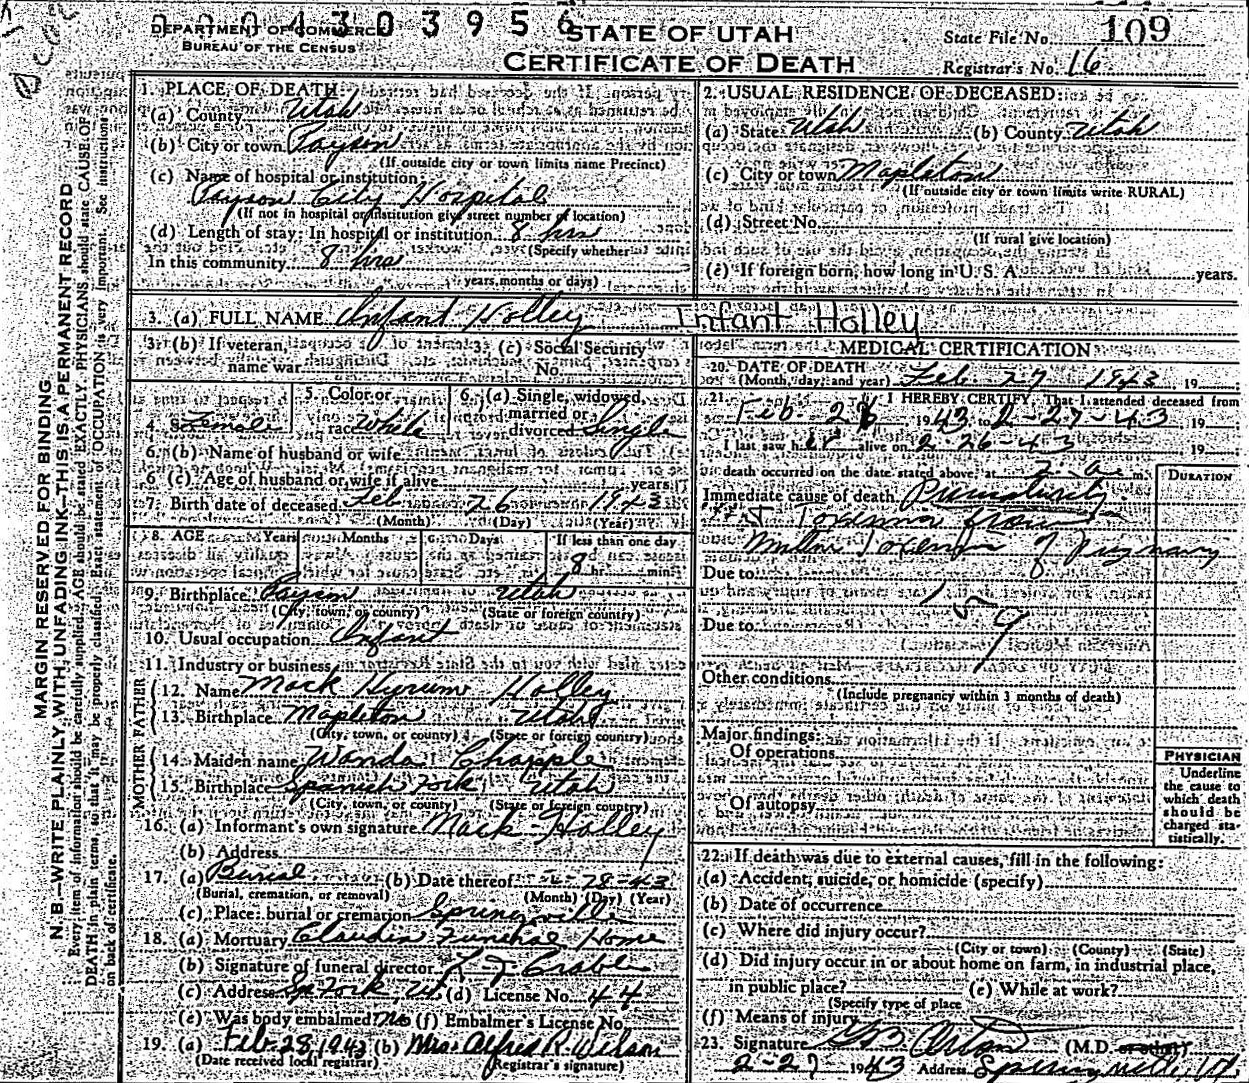 0 0 0 4 3 0 3 9 5 6
DEPARTMENT OF COMMERCE
BUREAU OF THE CENSUS
STATE OF UTAH
CERTIFICATE OF DEATH
State File No. 109
Registrar's No. 16
MARGIN RESERVED FOR BINDING
N. B.—WRITE PLAINLY, WITH UNFADING INK—THIS IS A PERMANENT RECORD
Every item of information should be carefully supplied. AGE should be stated EXACTLY. PHYSICIANS should state CAUSE OF
DEATH in plain terms, so that it may be properly classified. Exact statement of OCCUPATION is very important. See instructions
on back of certificate.
1. PLACE OF DEATH
(a) County Utah
(b) City or town Payson
(If outside city or town limits name Precinct)
(c) Name of hospital or institution:
Payson City Hospital
(If not in hospital or institution give street number or location)
(d) Length of stay: In hospital or institution 8 hrs
(Specify whether
In this community 8 hrs
years, months or days)
2. USUAL RESIDENCE OF DECEASED:
(a) State Utah (b) County Utah
(c) City or town Mapleton
(If outside city or town limits write RURAL)
(d) Street No.
(If rural give location)
(e) If foreign born, how long in U. S. A. years.
3. (a) FULL NAME Infant Holley Infant Holley
3. (b) If veteran, name war
3. (c) Social Security No.
4. Sex Female
5. Color or race White
6. (a) Single, widowed, married or divorced Single
6. (b) Name of husband or wife
6 (c) Age of husband or wife if alive years
7. Birth date of deceased Feb 26 1943
(Month) (Day) (Year)
8. AGE Years Months Days If less than one day
8 hr. min.
9. Birthplace Payson Utah
(City, town, or county) (State or foreign country)
10. Usual occupation Infant
11. Industry or business
FATHER
12. Name Mack Hyrum Holley
13. Birthplace Mapleton Utah
(City, town, or county) (State or foreign country)
MOTHER
14. Maiden name Wanda Chapple
15. Birthplace Spanish Fork Utah
(City, town, or county) (State or foreign country)
16. (a) Informant's own signature Mack Holley
(b) Address
17. (a) Burial (b) Date thereof 2-28-43
(Burial, cremation, or removal) (Month) (Day) (Year)
(c) Place: burial or cremation Springville
18. (a) Mortuary Claudin Funeral Home
(b) Signature of funeral director
(c) Address Sp Fork, Ut. (d) License No. 44
(e) Was body embalmed? No (f) Embalmer's License No.
19. (a) Feb. 28, 1943 (b) Mrs. Alfred R. Wilson
(Date received local registrar) (Registrar's signature)
MEDICAL CERTIFICATION
20. DATE OF DEATH
(Month, day, and year) Feb. 27 1943, 19
21. I HEREBY CERTIFY, That I attended deceased from
Feb. 26 1943 to 2-27-43, 19
I last saw her alive on 2-26-43 19
death occurred on the date stated above at 2 a m.
DURATION
Immediate cause of death Prematurity
Toxemia from
Toxemia of Pregnancy
Due to
159
Due to
Other conditions
(Include pregnancy within 3 months of death)
Major findings:
Of operations
Of autopsy
PHYSICIAN
Underline
the cause to
which death
should be
charged sta-
tistically.
22. If death was due to external causes, fill in the following:
(a) Accident, suicide, or homicide (specify)
(b) Date of occurrence
(c) Where did injury occur?
(City or town) (County) (State)
(d) Did injury occur in or about home on farm, in industrial place,
in public place? (e) While at work?
(Specify type of place
(f) Means of injury
23. Signature Orton (M.D. or other)
2-27 1943 Address Springville, Ut.